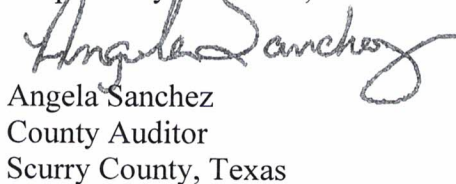 Angela Sanchez
Angela Sanchez
County Auditor
Scurry County, Texas